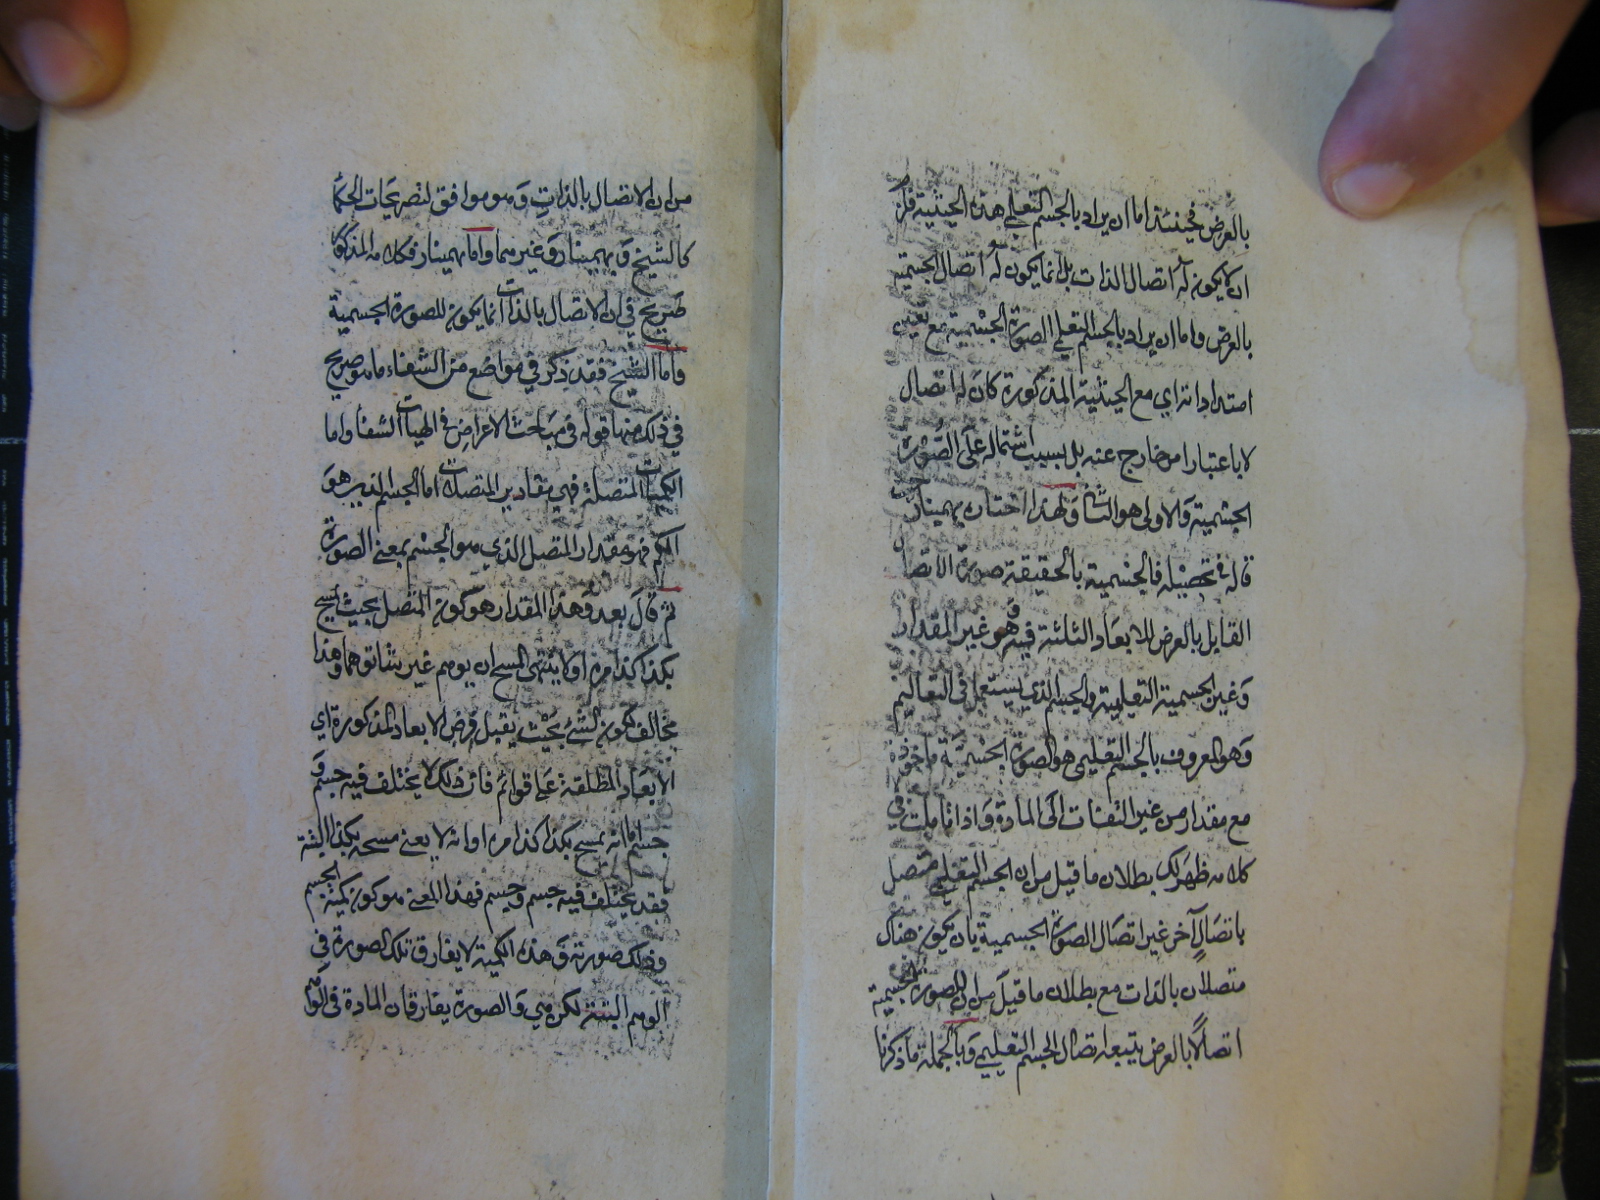 بالعرض فحينئذ اما ان يراد بالجسم التعليمي هذه الحيثية
ان لا يكون له اتصال الذات بل انما يكون له اتصال الجسمية
بالعرض واما ان يراد بالجسم التعليمي الصورة الجسمية مع تعين
امتداداته اي مع الحيثية المذكورة كان له اتصال
لا باعتبار امر خارج عنه بل بسبب اشتماله على الصورة
الجسمية والاولى هو الثاني ولهذا اختار بهمينار
قال في تحصيله فالجسمية بالحقيقة صورة الاتصال
القابل بالعرض للابعاد الثلثة فيه فهو غير المقدار
وغير الجسمية التعليمية والجسم الذي يستعمل في التعاليم
وهو المعروف بالجسم التعليمي هو الصورة الجسمية ماخوذة
مع مقدار من غير التفات الى المادة واذا تاملت في
كلامه ظهر لك بطلان ما قيل من ان الجسم التعليمي متصل
باتصال آخر غير اتصال الصورة الجسمية بان يكون هناك
متصلان بالذات مع بطلان ما قيل من ان للصورة الجسمية
اتصالاً بالعرض بتبعية اتصال الجسم التعليمي وبالجملة ما ذكرنا
من ان الاتصال بالذات وهو موافق لتصريحات الحكما
كالشيخ وبهمينار وغيرهما واما بهمينار فكلامه المذكور
صريح في ان الاتصال بالذات انما يكون للصورة الجسمية
واما الشيخ فقد ذكر في مواضع من الشفاء ما هو صريح
في ذلك منها قوله في مباحث الاعراض في الهيات الشفا واما
الكميات المتصلة فهي مقادير المتصلات اما الجسم الذي هو
الكم فهو مقدار المتصل الذي هو الجسم بمعنى الصورة
ثم قال بعده وهذا المقدار هو كون المتصل بحيث يمسح
بكذا كذا مرة او لا ينتهي المسح ان يوهم غير متناه توهما وهذا
مخالف لكون الشئ بحيث يقبل فرض الابعاد المذكورة اي
الابعاد المطلقة على قوائم فان ذلك لا يختلف فيه جسم و
جسم اما انه يمسح بكذا كذا مرة او انه لا يعنى مسحه بكذا البتة
فقد يختلف فيه جسم وجسم فهذا المعنى هو كون كمية الجسم
وذلك صورته وهذه الكمية لا يفارق تلك الصورة في
الوهم البتة لكن هي والصورة يفارقان المادة في الوهم